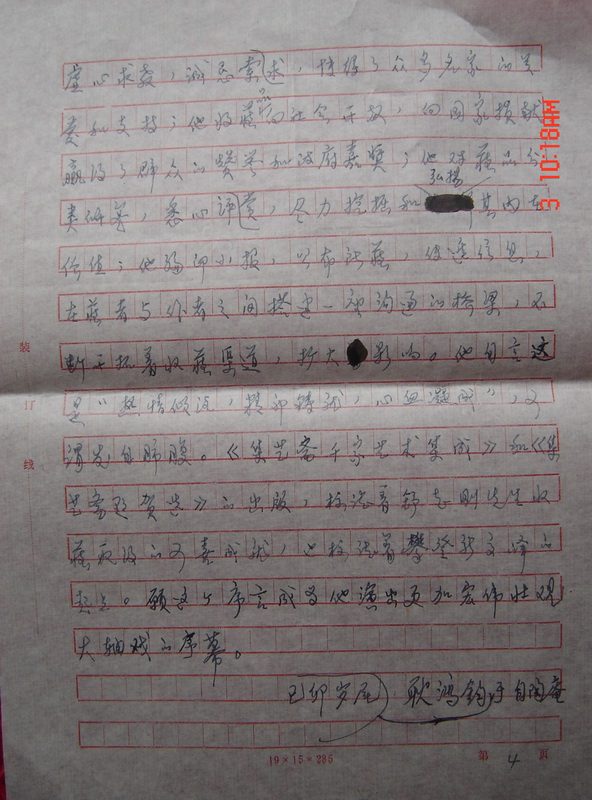 虚心求教，诚恳索求，博得了众多名家的关
爱和支持；他将藏品向社会开放，向国家捐献
赢得了群众的赞誉和政府嘉奖；他对藏品分
类研究，悉心评赏，尽力挖掘和弘扬其内在
价值；他编印小报，公布所藏，传递信息，
在藏者与作者之间搭建一座沟通的桥梁，不
断开拓着收藏渠道，扩大影响。他自言这
是“热情倾注，精神铸就，心血凝成”，可
谓发自肺腑。《集艺斋千家艺术集成》和《集
艺斋题贺岂》的出版，标志着舒志刚先生收
藏取得的可喜成就，也标志着攀登新高峰的
起点。愿这个序言成为他演出更加宏伟壮观
大轴戏的序幕。
己卯岁尾 耿鸿钧于自陶庵
19×15=285
第 4 页
装
订
线
3 10:18AM